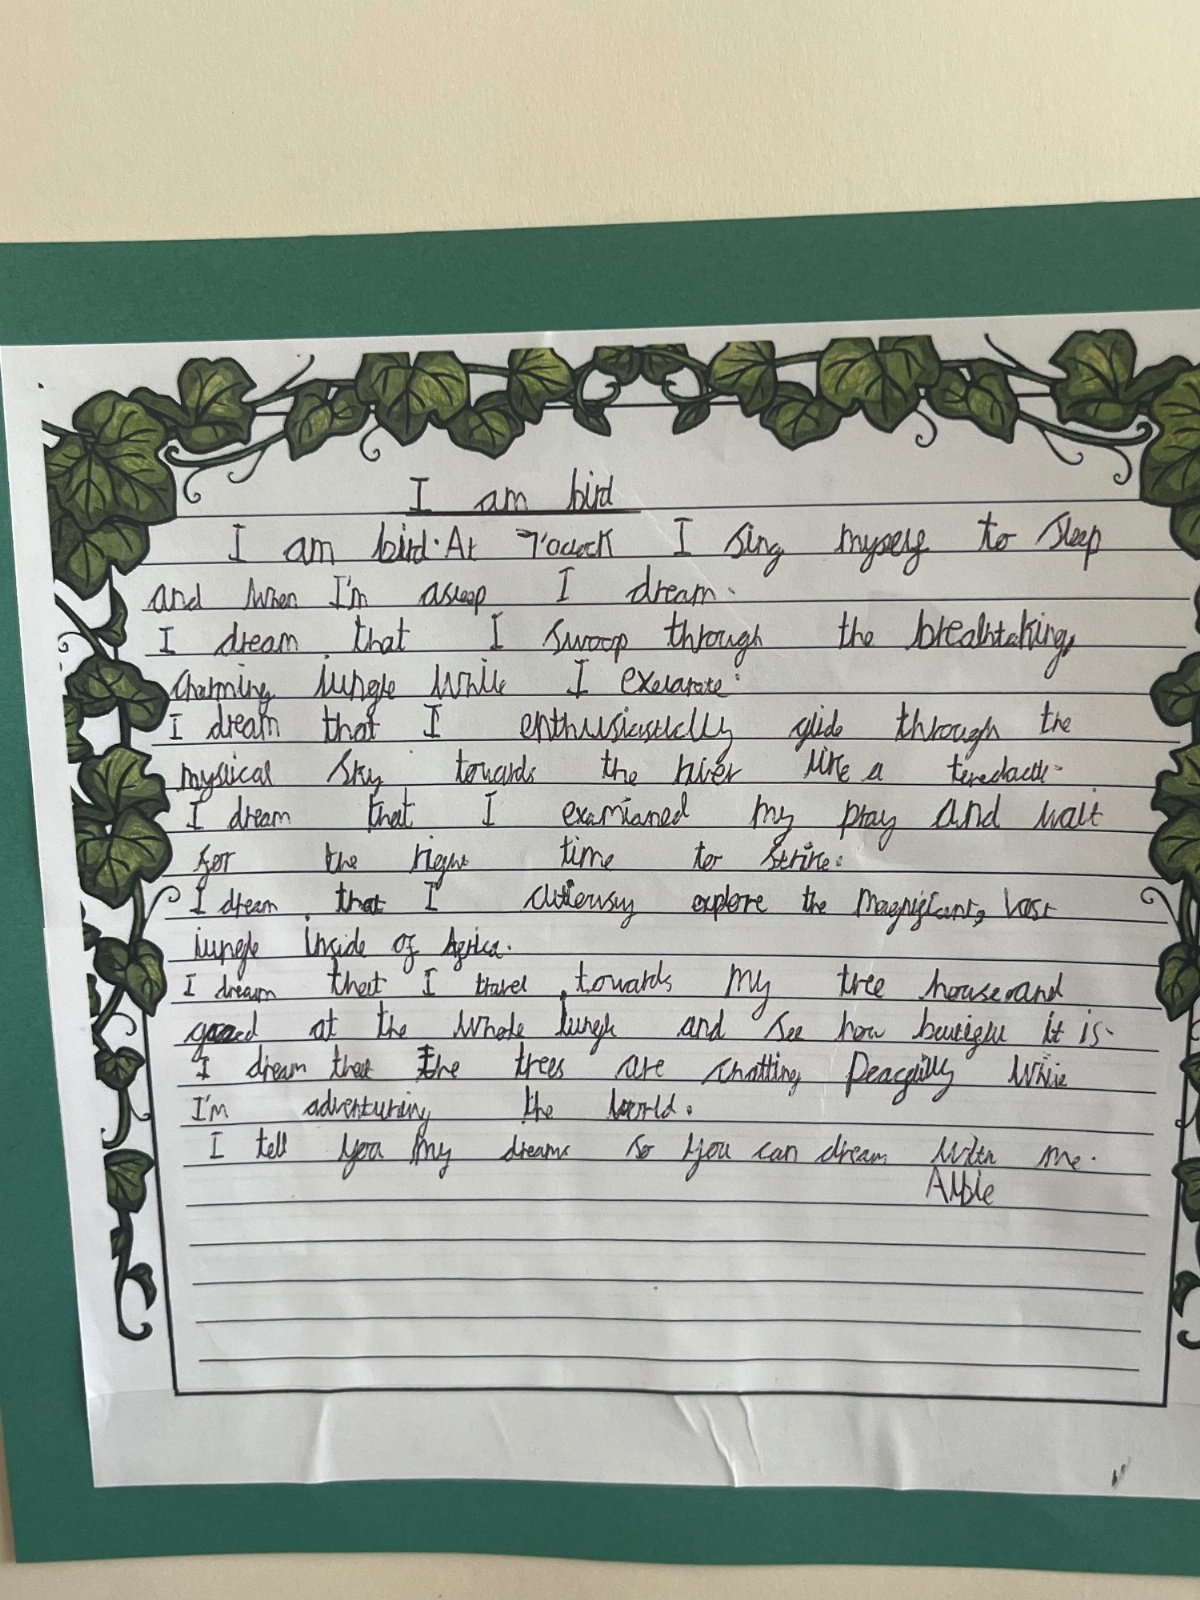 I am bird
I am bird. At 7'oclock I sing myself to sleep
and when I'm asleep I dream.
I dream that I swoop through the breahtaking,
charming jungle while I exelarate.
I dream that I glide through the
mystical sky towards the hiver like a teredactle.
I dream that I examianed my pray and wait
for the right time to strike.
I dream that I explore the magnificant, vast
jungle inside of Africa.
I dream that I travel towards my tree house and
at the whole jungle and see how it is.
I dream that the trees are chatting while
I'm adventuring the world.
I tell you my dreams so you can dream with me.